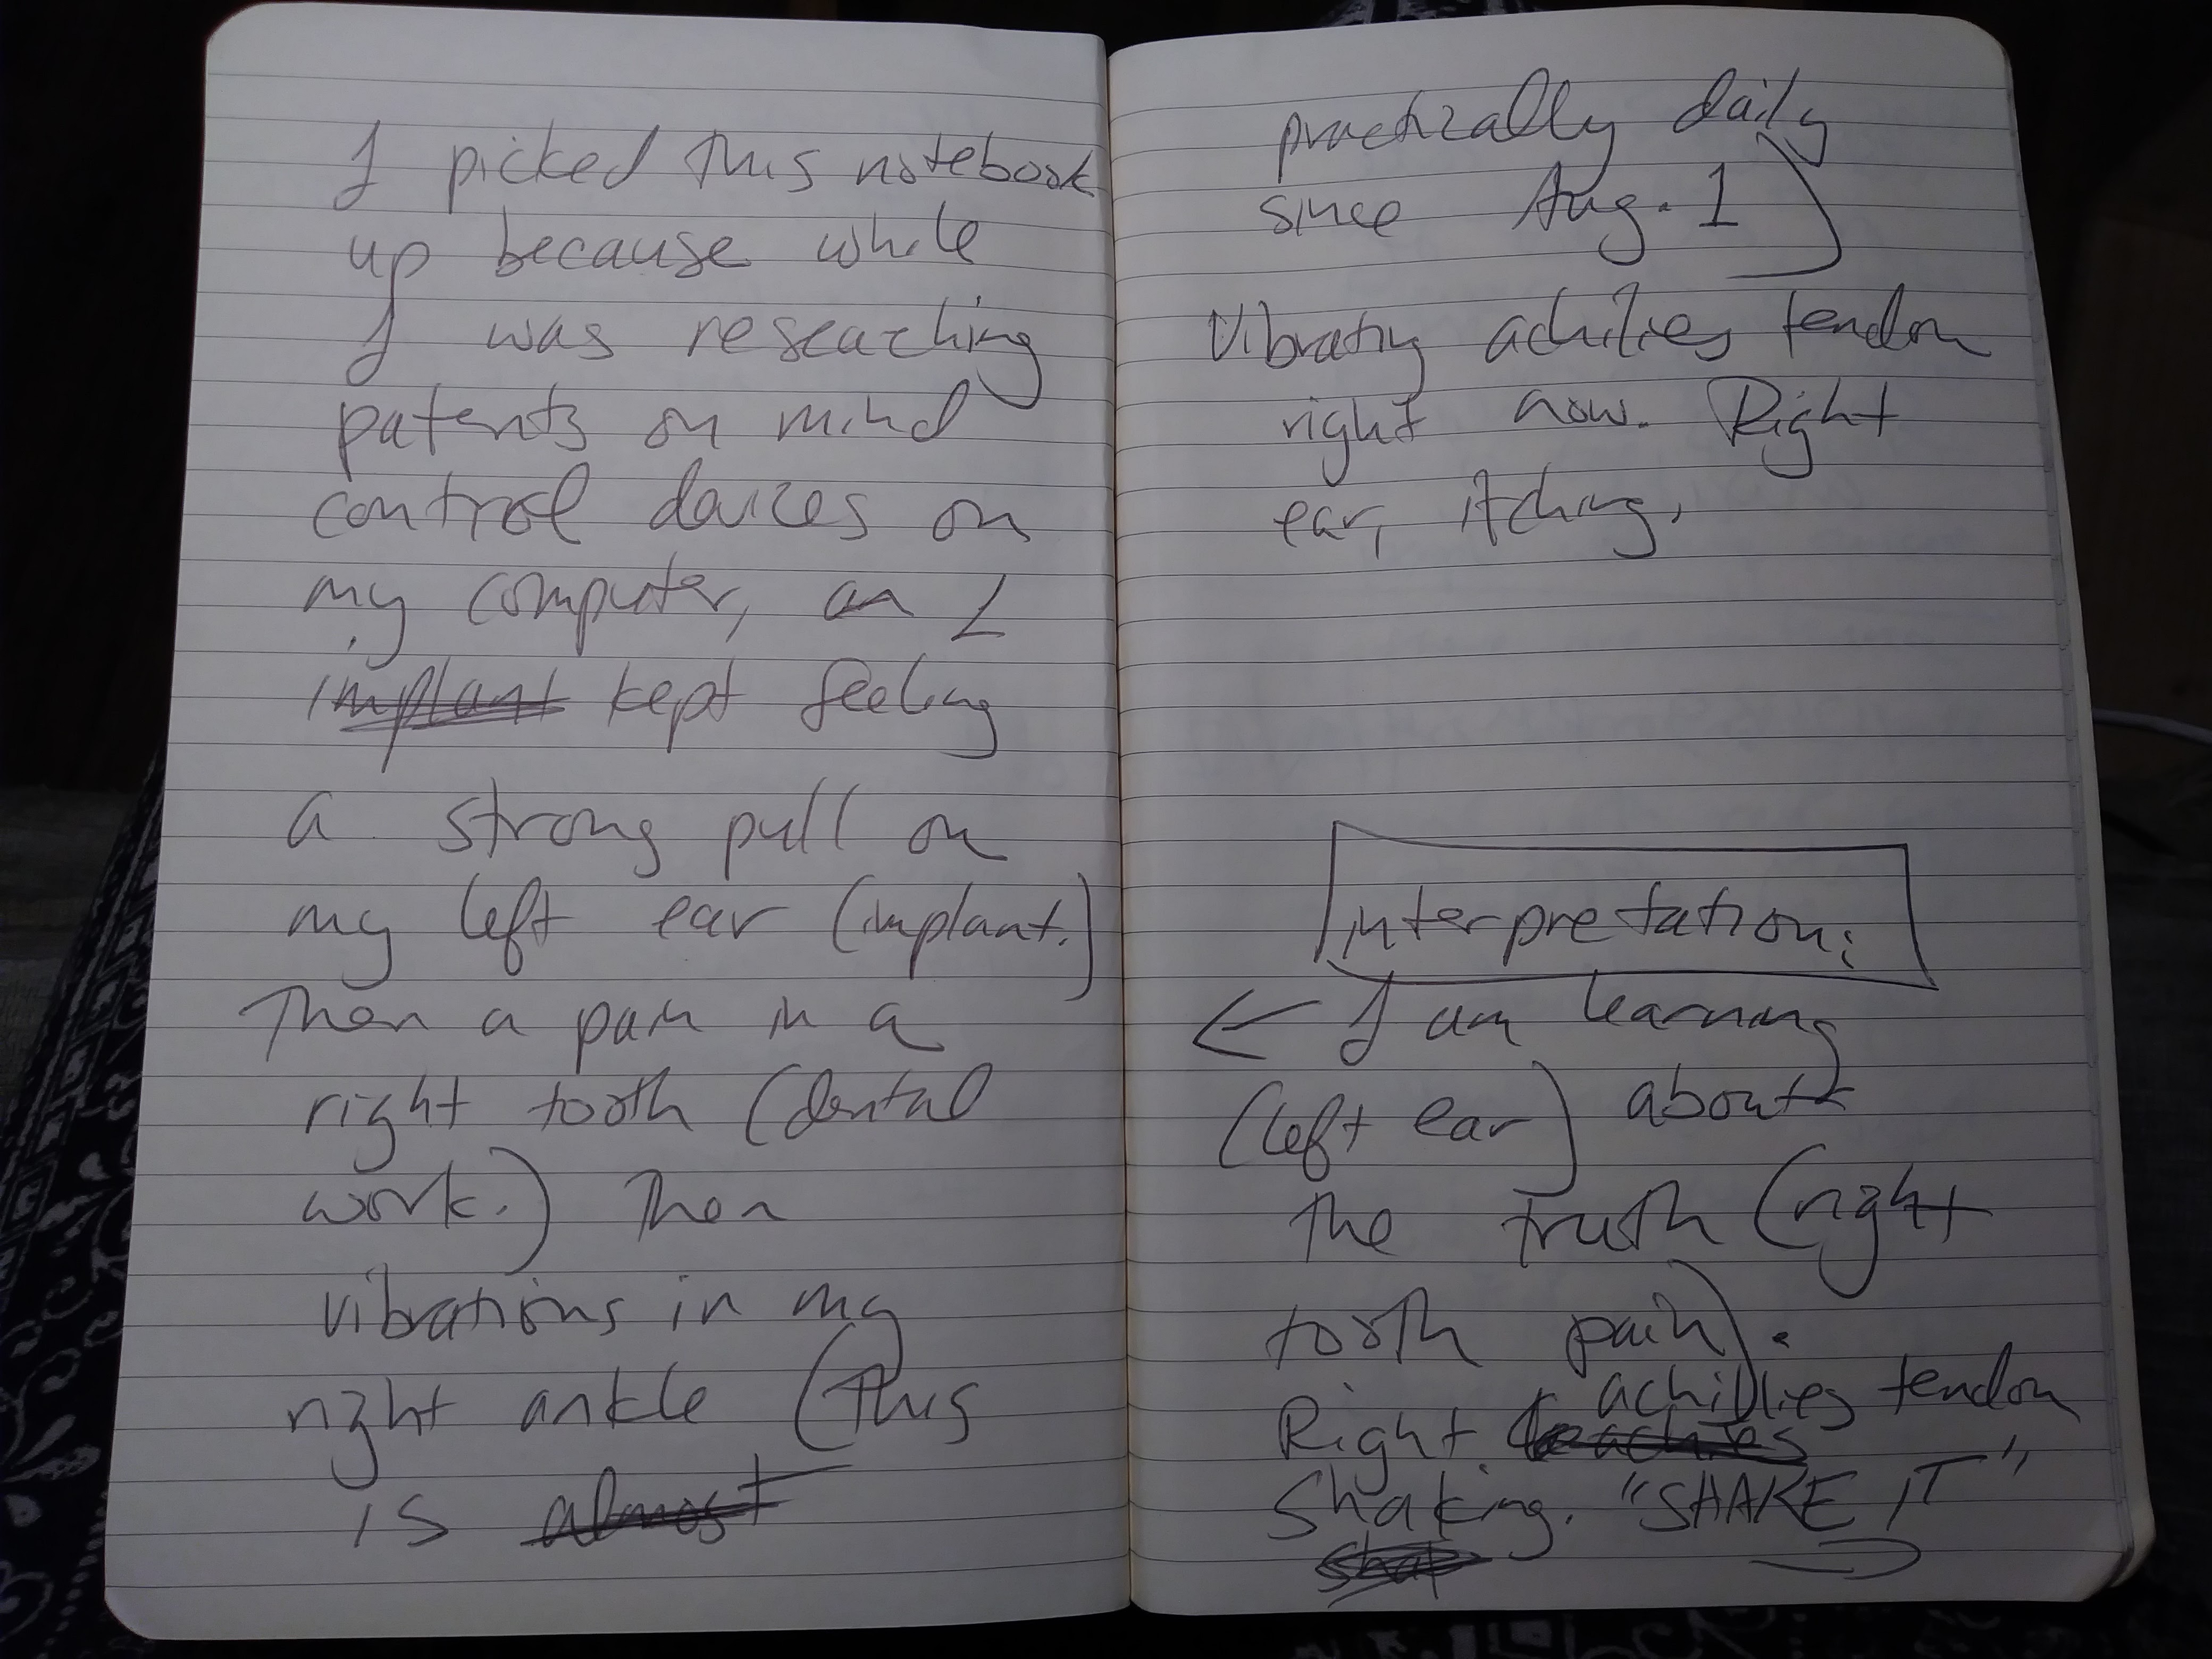 I picked this notebook
up because while
I was reseaching
patents on mind
control devices on
my computer, an I
implant kept feeling
a strong pull on
my left ear (implant.)
Then a pain in a
right tooth (dental
work.) Then
vibrations in my
right ankle (this
is almost
practically daily
since Aug. 1)
Vibrating achilies tendon
right now. Right
ear, itching.
interpretation:
← I am learning
(left ear) about
the truth (right
tooth pain).
achillies tendon
Right
Shaking. "SHAKE IT"